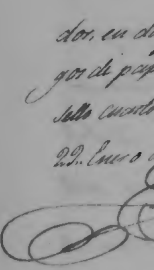 dor, en di
gos de pap
sello cuarto
22. Enero d